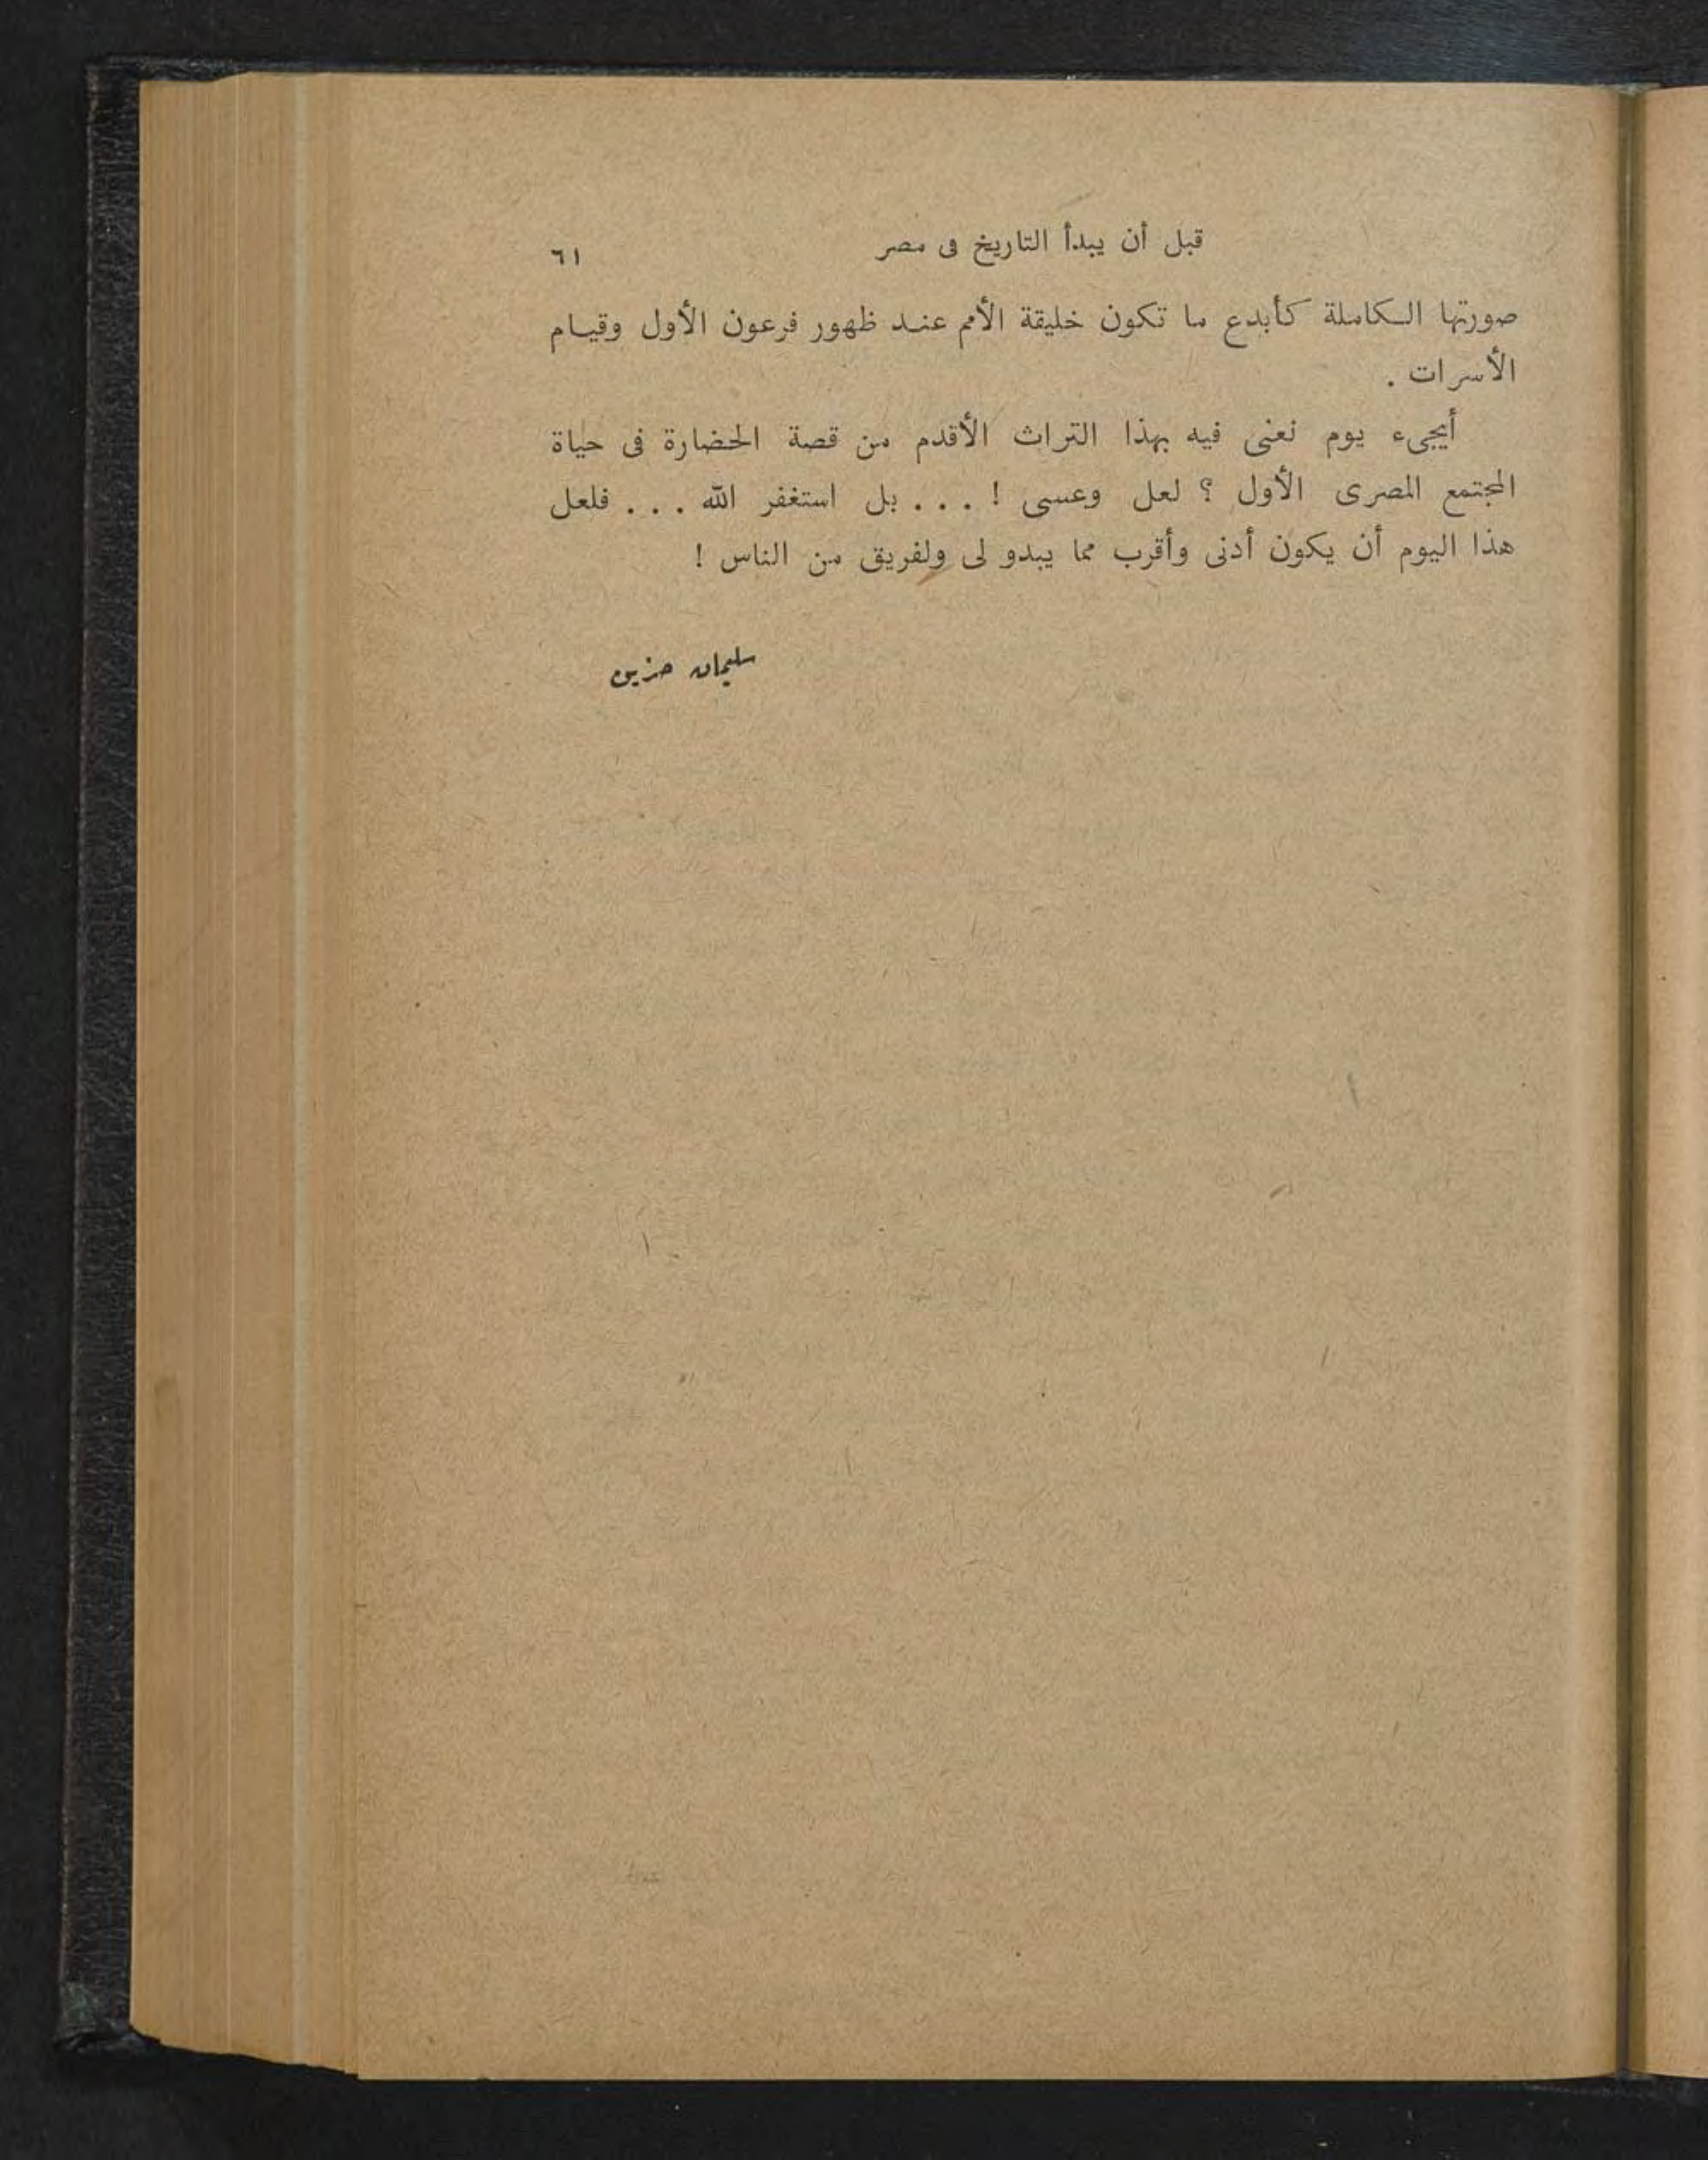 قبل أن يبدأ التاريخ فى مصر ٦١
صورتها الكاملة كأبدع ما تكون خليقة الأمم عند ظهور فرعون الأول وقيام
الأسرات .
أيجىء يوم نعنى فيه بهذا التراث الأقدم من قصة الحضارة فى حياة
المجتمع المصرى الأول ؟ لعل وعسى ! . . . بل استغفر الله . . . فلعل
هذا اليوم أن يكون أدنى وأقرب مما يبدو لى ولفريق من الناس !
سليمان حزين